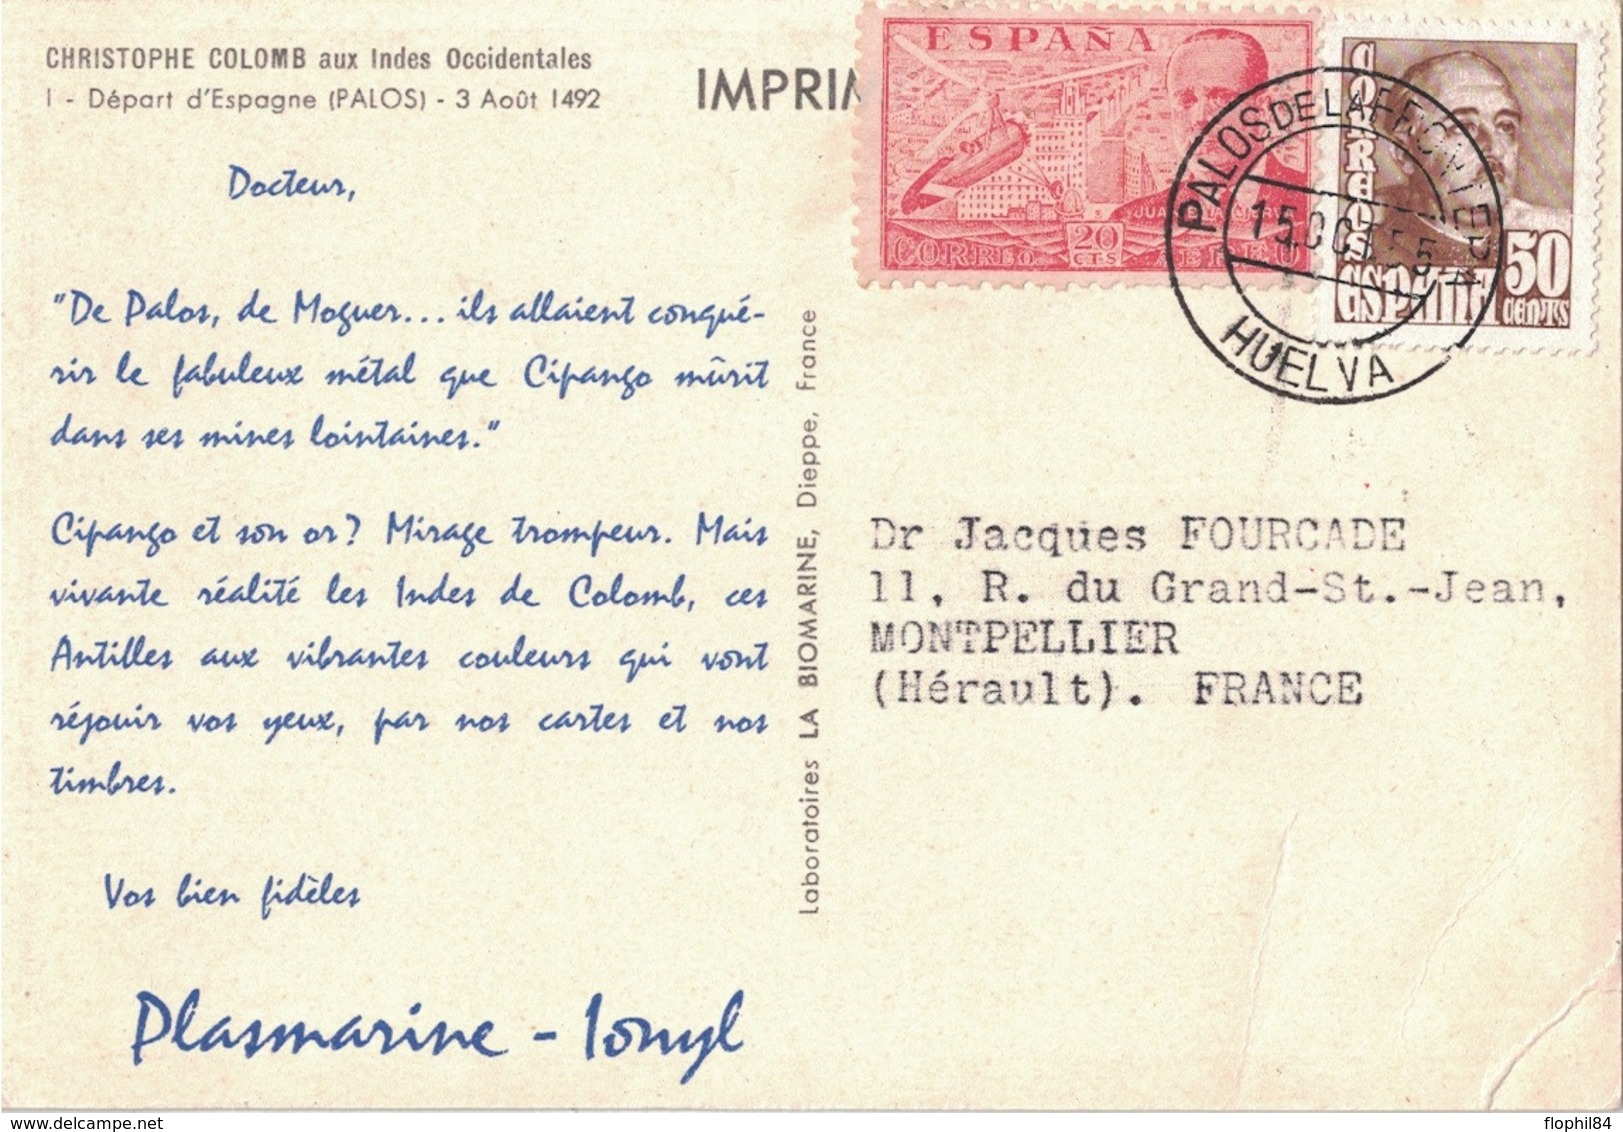 CHRISTOPHE COLOMB aux Indes Occidentales
I - Départ d'Espagne (PALOS) - 3 Août 1492
IMPRIM
ESPAÑA
20
CTS
CORREO AEREO
CORREOS
ESPAÑA
50
CENTS
PALOS DE LA FRONTERA
15 OCT 55
HUELVA
Docteur,
"De Palos, de Moguer... ils allaient conqué-
rir le fabuleux métal que Cipango mûrit
dans ses mines lointaines."
Cipango et son or? Mirage trompeur. Mais
vivante réalité les Indes de Colomb, ces
Antilles aux vibrantes couleurs qui vont
réjouir vos yeux, par nos cartes et nos
timbres.
Vos bien fidèles
Plasmarine - Ionyl
Laboratoires LA BIOMARINE, Dieppe, France
Dr Jacques FOURCADE
11, R. du Grand-St.-Jean,
MONTPELLIER
(Hérault). FRANCE
www.delcampe.net
flophil84